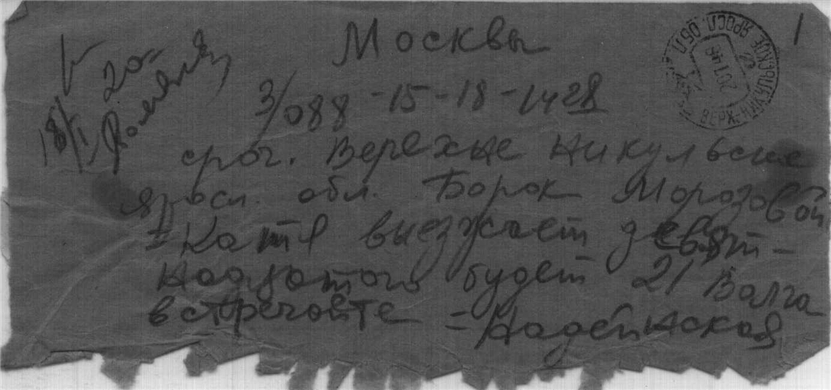 Москвы
1
3/088-15-18-1428
сроч. Верехые Никульские
яросл. обл. Борок Морозовой
= Катя выезжает девят-
надцатого будет 21 Волга
встречайте = Надеинская
18/I
20=